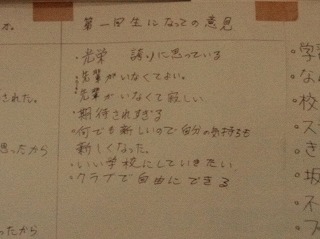 第一回生になっての意見
・光栄 誇りに思っている
・先輩がいなくてよい。
・先輩がいなくて寂しい
・期待されすぎる
・何でも新しいので自分の気持ちも
新しくなった。
・いい学校にしていきたい
・クラブで自由にできる
された。
思ったから
ったから
・学習
・な
・校
・ス
・き
・坂
・不
・フ